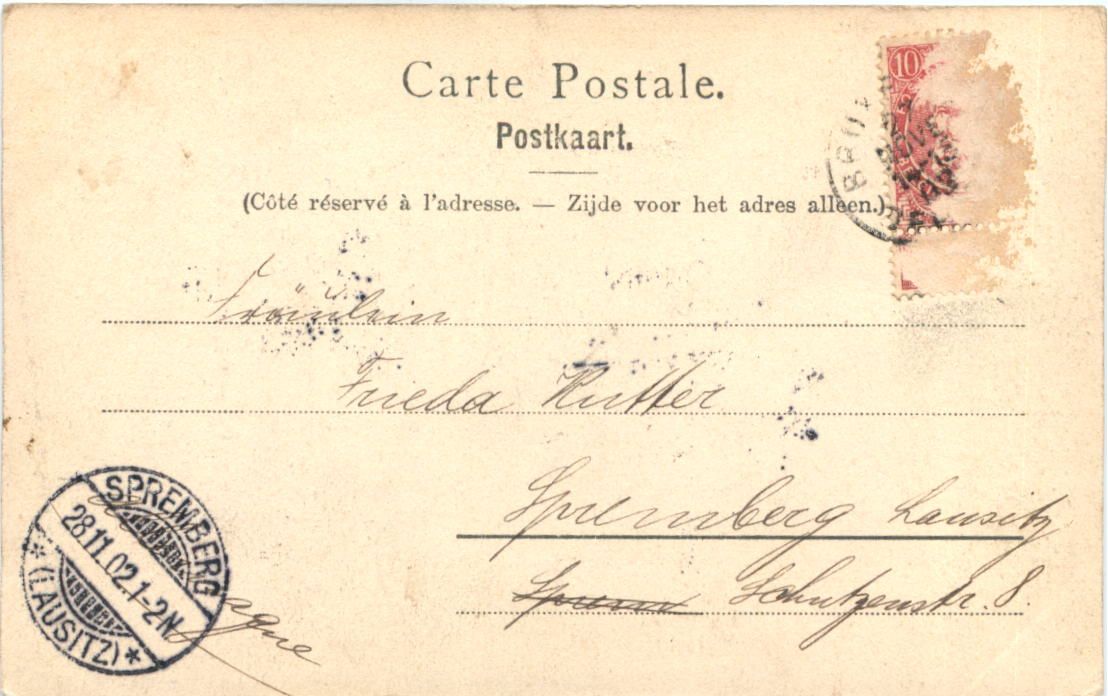 Carte Postale.
Postkaart.
(Côté réservé à l'adresse. — Zijde voor het adres alleen.)
10
BRUX
Fräulein
Frieda Kutter
Spremberg Lausitz
Sprem Schutzenstr. 8.
SPREMBERG
28.11.02.1-2N.
*(LAUSITZ)*